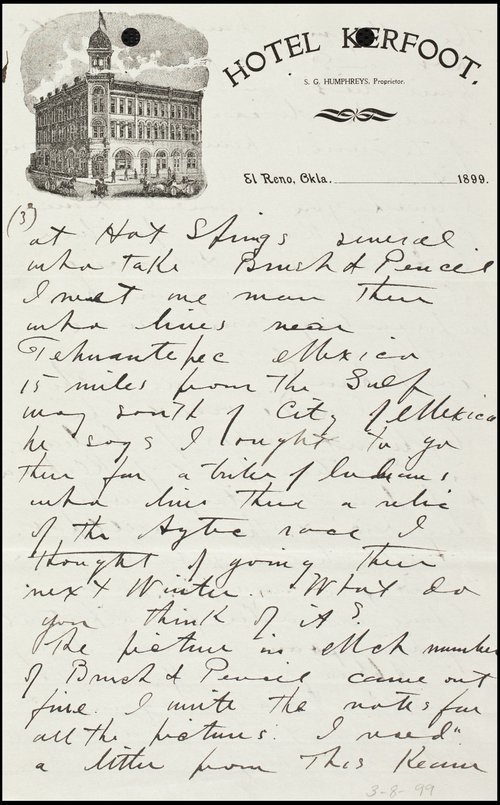 HOTEL KERFOOT.
S. G. HUMPHREYS, Proprietor.
El Reno, Okla. 1899.
(3)
at Hot Springs several
who take Brush & Pencil
I met one man there
who lives near
Tehuantepec Mexico
15 miles from the Gulf
way south of City of Mexico
he says I ought to go
there for a tribe of Indians
who live there a relic
of the Aztec race I
thought of going there
next Winter. What do
you think of it?
The picture in Mch number
of Brush & Pencil came out
fine. I write the notes for
all the pictures. I recd
a letter from This
3-8-99